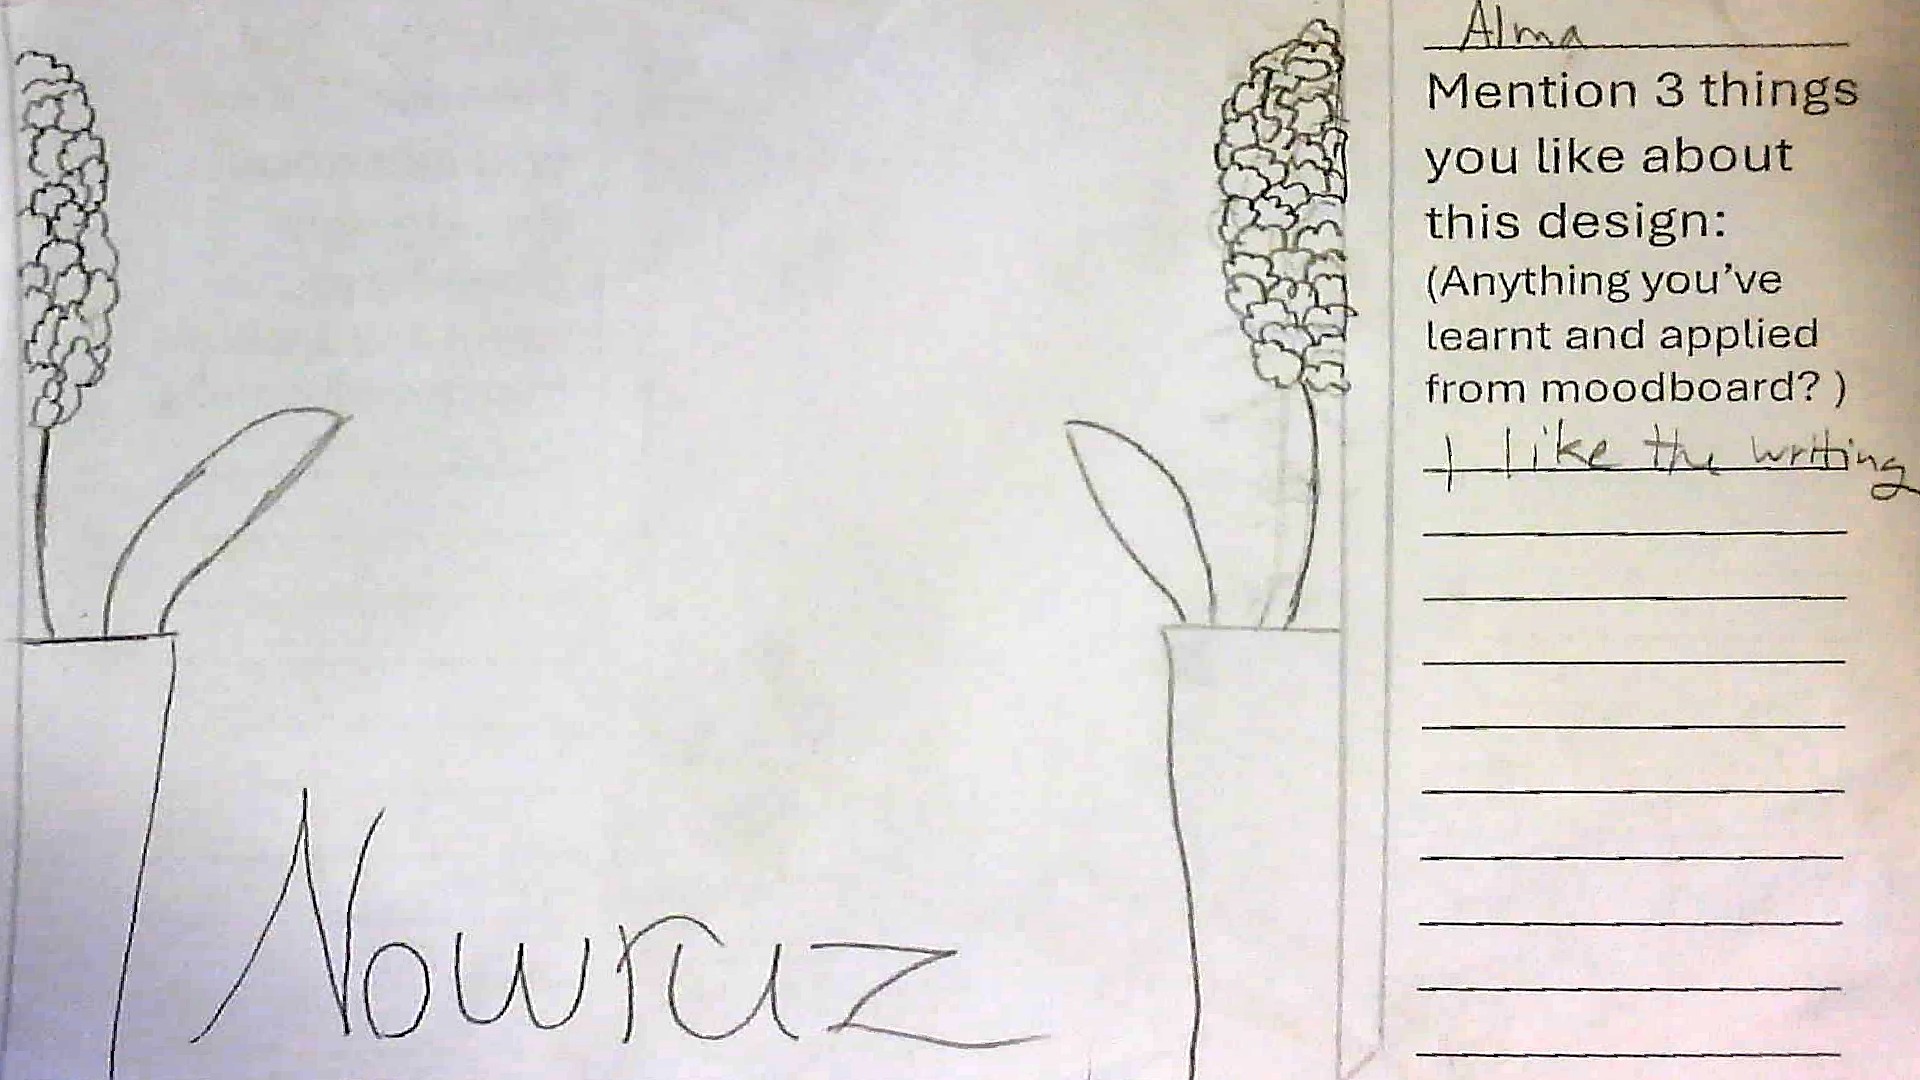 Alma
Mention 3 things
you like about
this design:
(Anything you've
learnt and applied
from moodboard? )
I like the writing
Nowruz